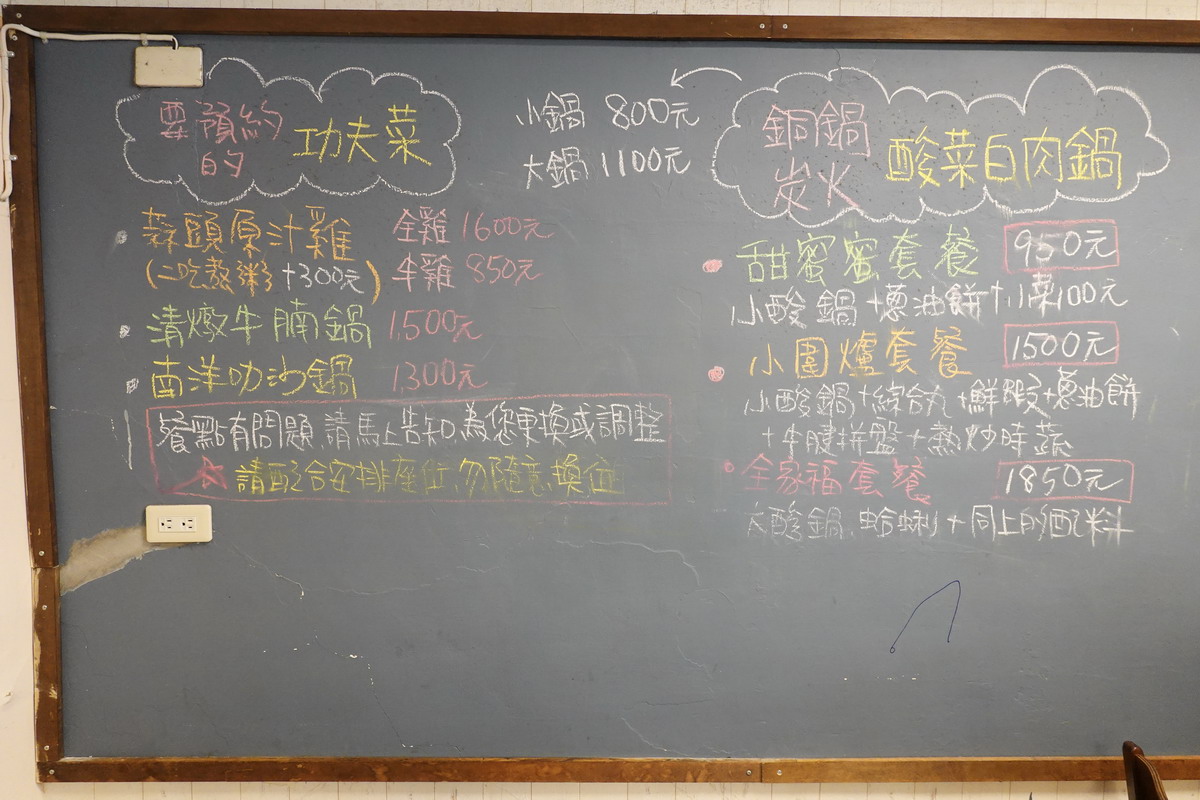 要預約
的
功夫菜
蒜頭原汁雞 全雞 1600元
(二吃熬粥 +300元) 半雞 850元
清燉牛腩鍋 1,500元
南洋叻沙鍋 1,300元
餐點有問題,請馬上告知,為您更換或調整
請配合安排座位,勿隨意換位
小鍋 800元
大鍋 1100元
銅鍋
炭火
酸菜白肉鍋
甜蜜蜜套餐 950元
小酸鍋+蔥油餅+小菜100元
小圍爐套餐 1500元
小酸鍋+綜合丸+鮮蝦+蔥油餅
+牛腱拼盤+熱炒時蔬
全家福套餐 1850元
大酸鍋,蛤蜊+同上的配料